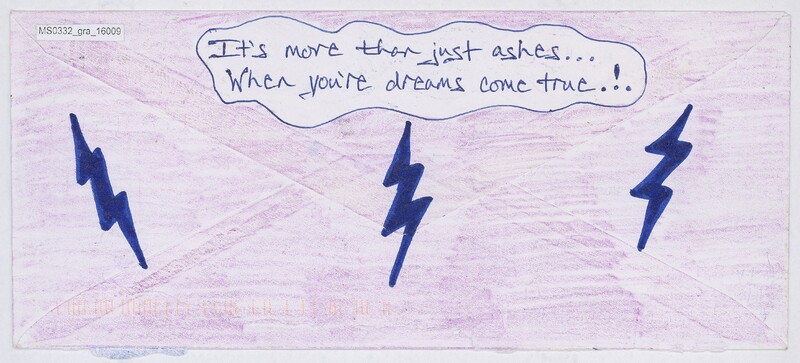 MS0332_gra_16009
It's more than just ashes...
When you're dreams come true.!.